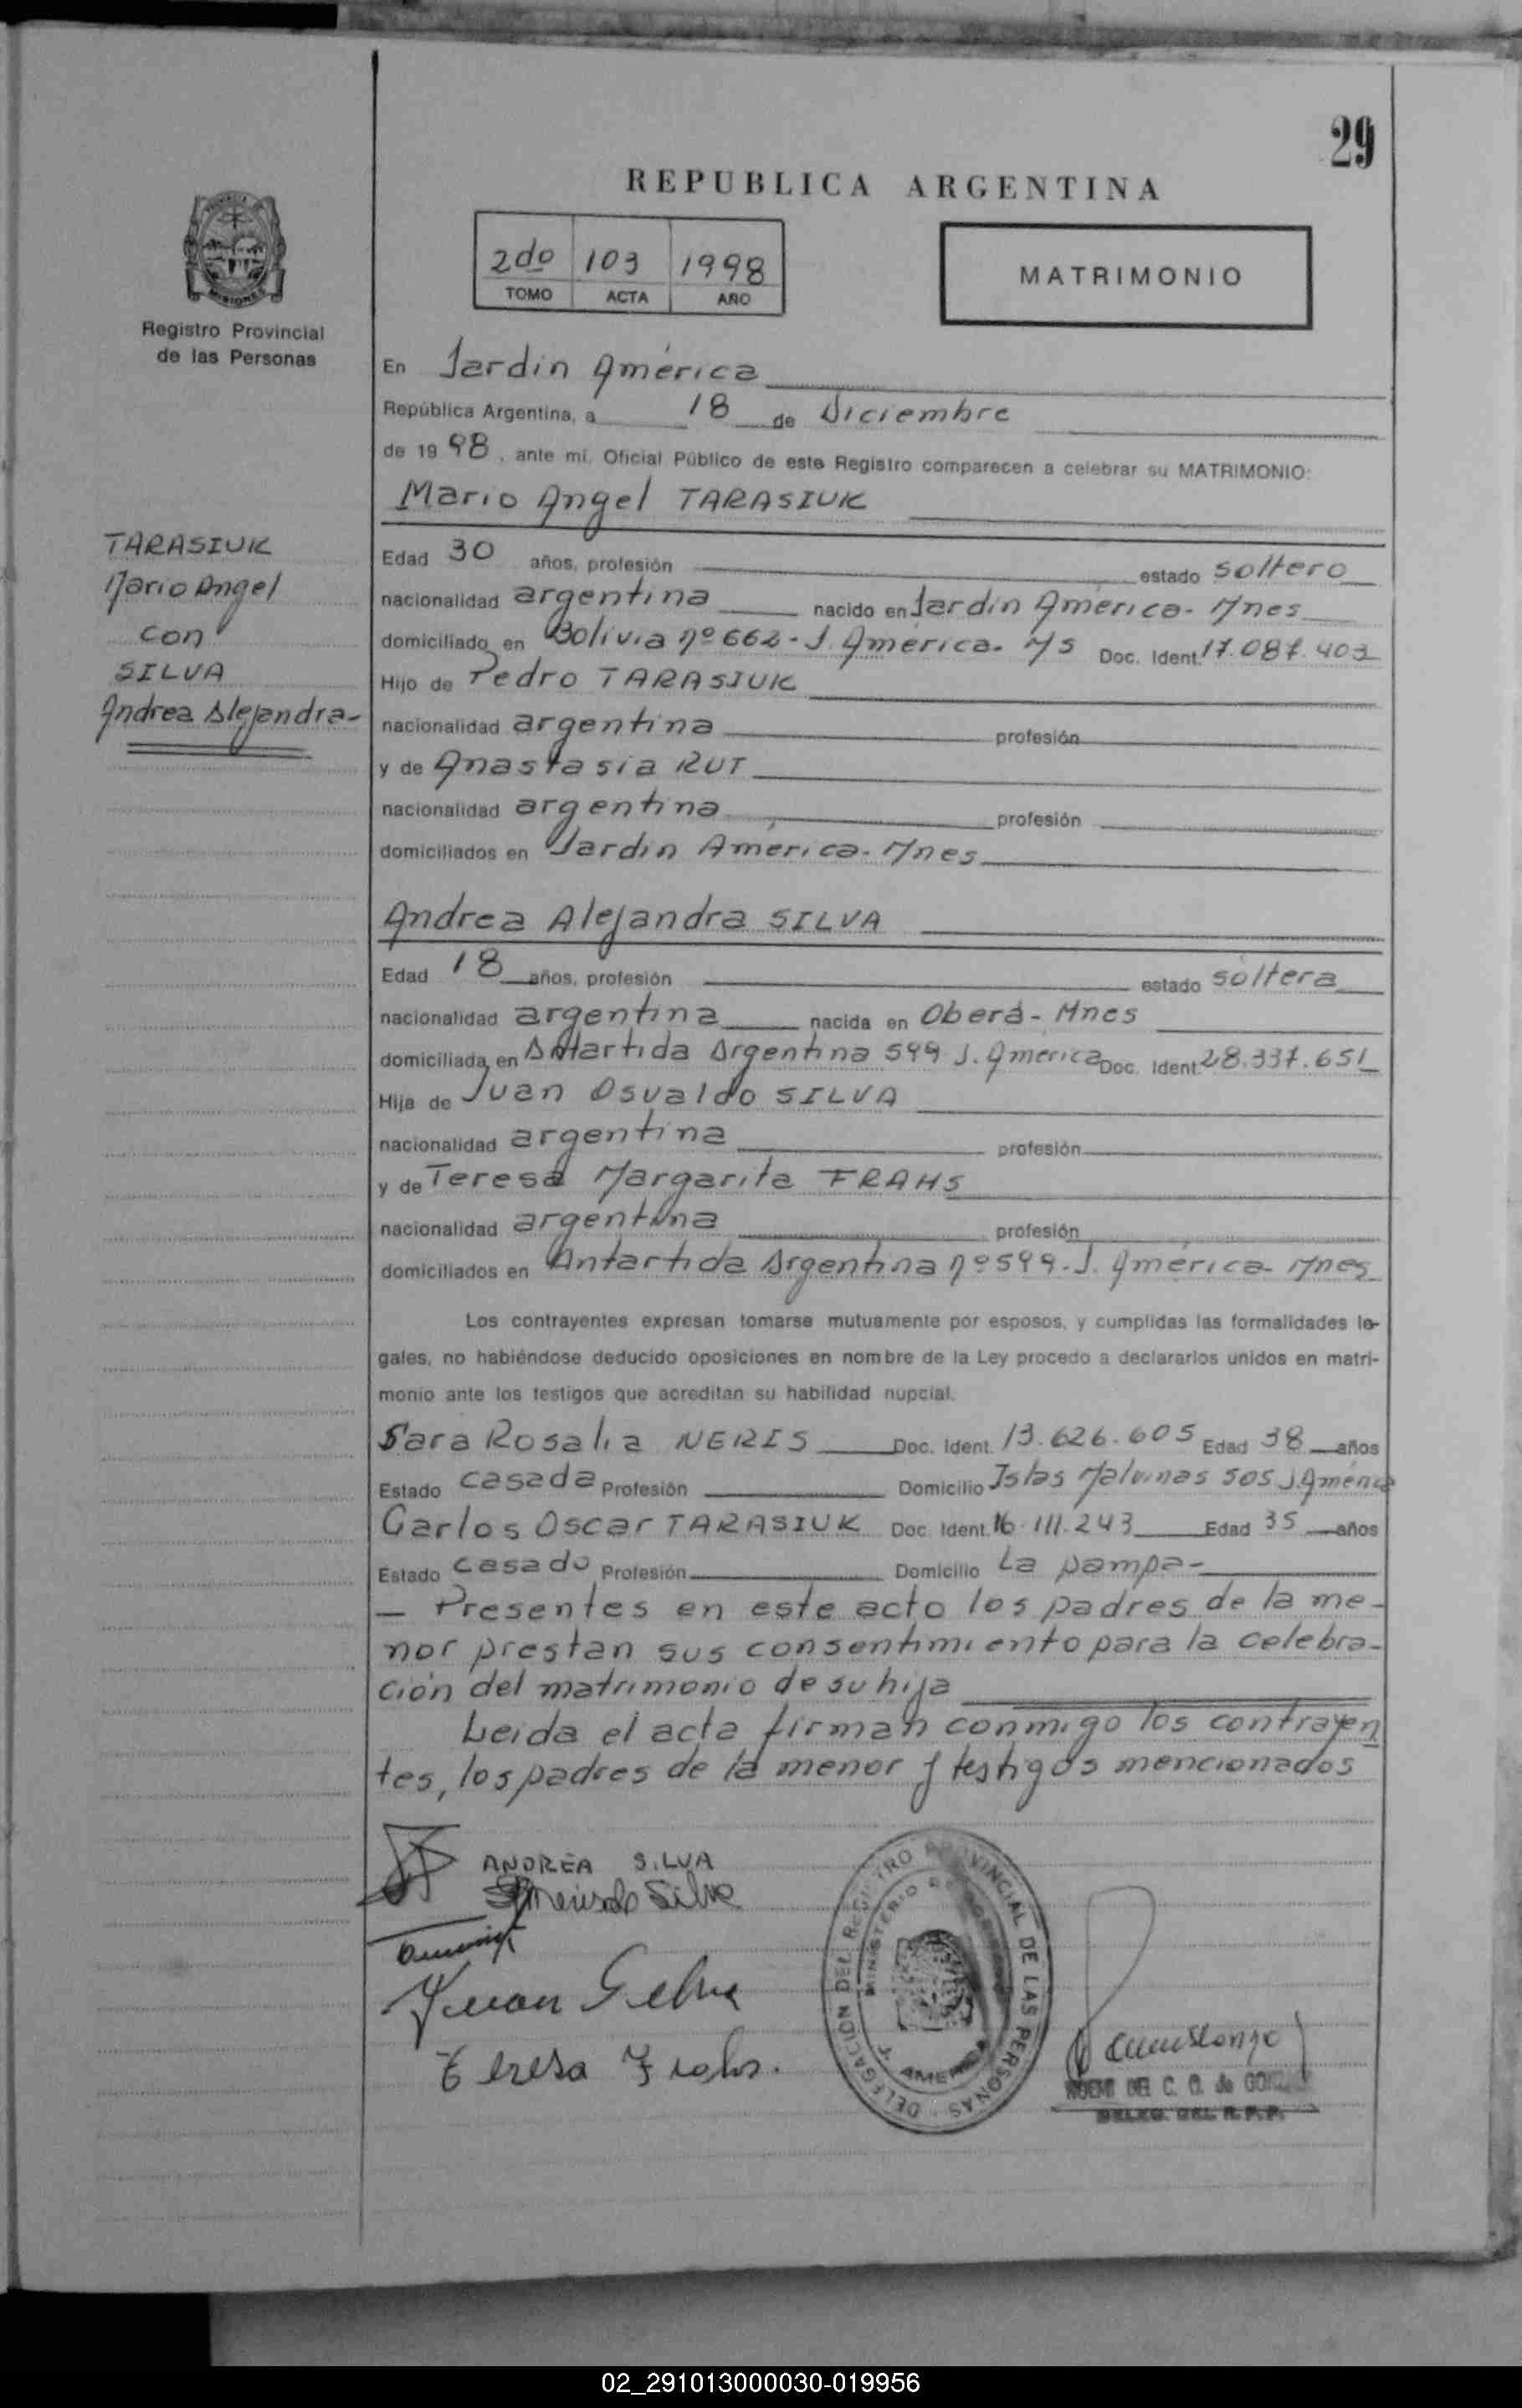 29
REPUBLICA ARGENTINA
2do 103 1998
TOMO ACTA AÑO
MATRIMONIO
MISIONES
Registro Provincial
de las Personas
En Jardin América
República Argentina, a 18 de Diciembre
de 1998, ante mí, Oficial Público de este Registro comparecen a celebrar su MATRIMONIO:
Mario Angel TARASIUK
TARASIUK
Mario Angel
con
SILVA
Andrea Alejandra-
Edad 30 años, profesión estado soltero
nacionalidad argentina nacido en Jardin América- Mnes
domiciliado en Bolivia nº 662- J. América- Ms Doc. Ident. 17.087.403
Hijo de Pedro TARASIUK
nacionalidad argentina profesión
y de Anastasia RUT
nacionalidad argentina profesión
domiciliados en Jardin América- Mnes
Andrea Alejandra SILVA
Edad 18 años, profesión estado soltera
nacionalidad argentina nacida en Oberá- Mnes
domiciliada en Antartida Argentina 599 J. América Doc. Ident. 28.337.651
Hija de Juan Osvaldo SILVA
nacionalidad argentina profesión
y de Teresa Margarita FRAHS
nacionalidad argentina profesión
domiciliados en Antartida Argentina nº 599- J. América- Mnes
Los contrayentes expresan tomarse mutuamente por esposos, y cumplidas las formalidades le-
gales, no habiéndose deducido oposiciones en nombre de la Ley procedo a declararlos unidos en matri-
monio ante los testigos que acreditan su habilidad nupcial.
Sara Rosalia NERIS Doc. Ident. 13.626.605 Edad 38 años
Estado casada Profesión Domicilio Islas Malvinas 505 J. América
Carlos Oscar TARASIUK Doc. Ident. 16.111.243 Edad 35 años
Estado casado Profesión Domicilio La pampa-
- Presentes en este acto los padres de la me-
nor prestan sus consentimiento para la celebra-
ción del matrimonio de su hija
Leida el acta firman conmigo los contrayen
tes, los padres de la menor y testigos mencionados
ANDREA SILVA
Juan Silva
Teresa Frahs.
DELEGACION DEL REGISTRO PROVINCIAL DE LAS PERSONAS
MINISTERIO DE
J. AMERICA
DEL C. G. de
DELEG. DEL R.P.P.
02_291013000030-019956